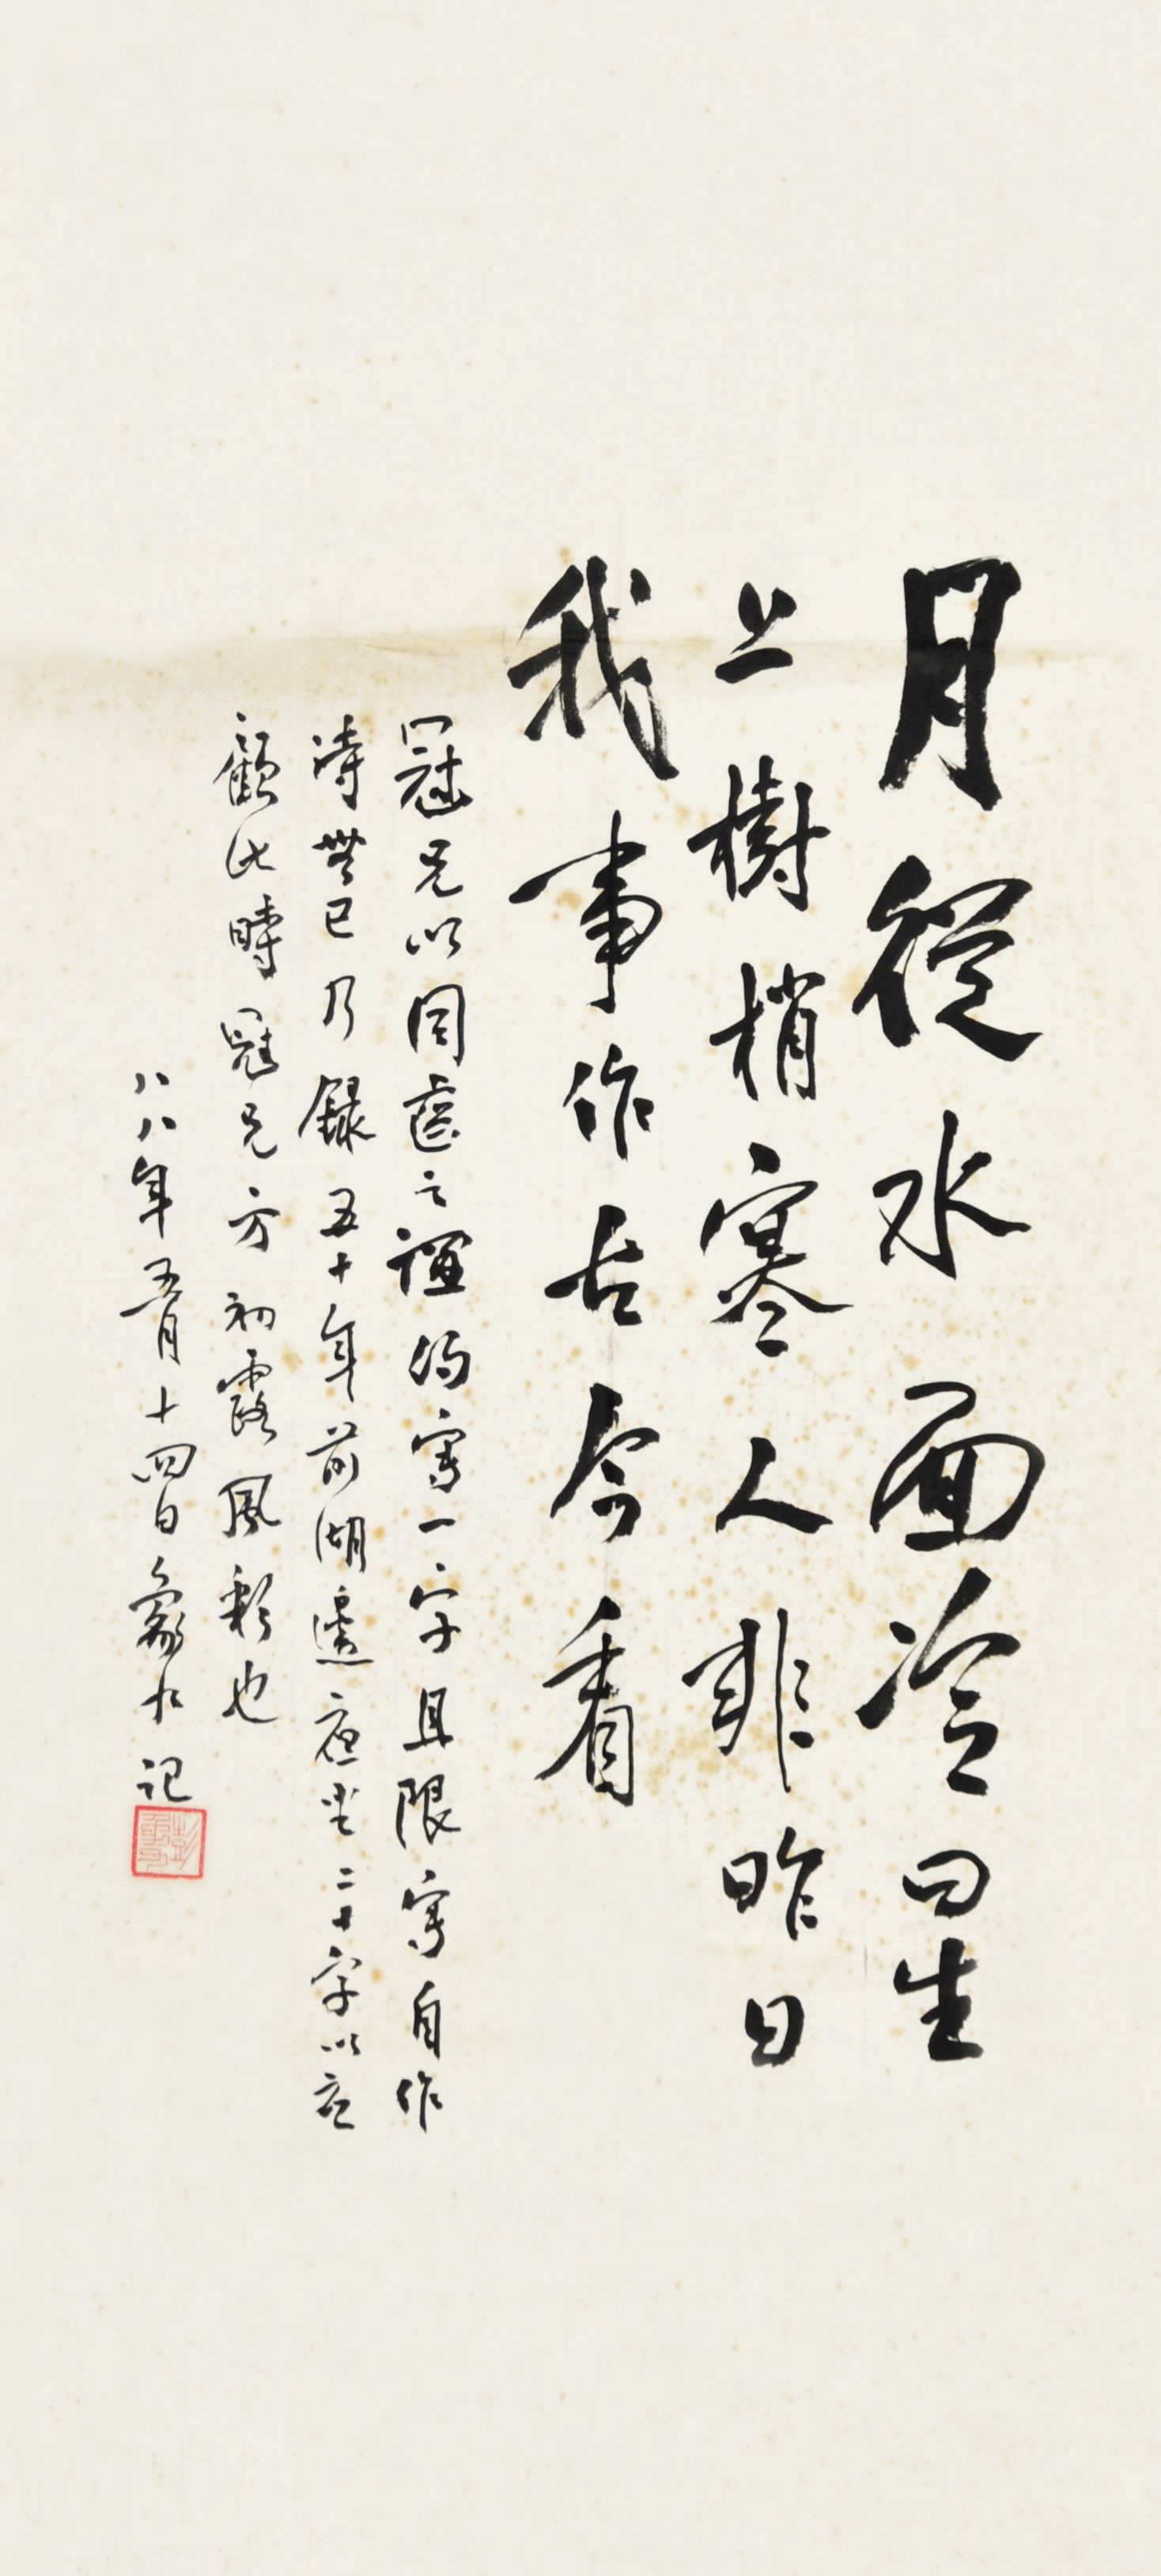 月從水面冷星
上樹梢寒人非昨日
我事作古今看
冠兄以同齒之誼約寫一字且限寫自作
詩無已乃錄五十年前湖邊夜坐二十字以應
顧此時冠兄方初露風彩也
八八年五月十四日 記